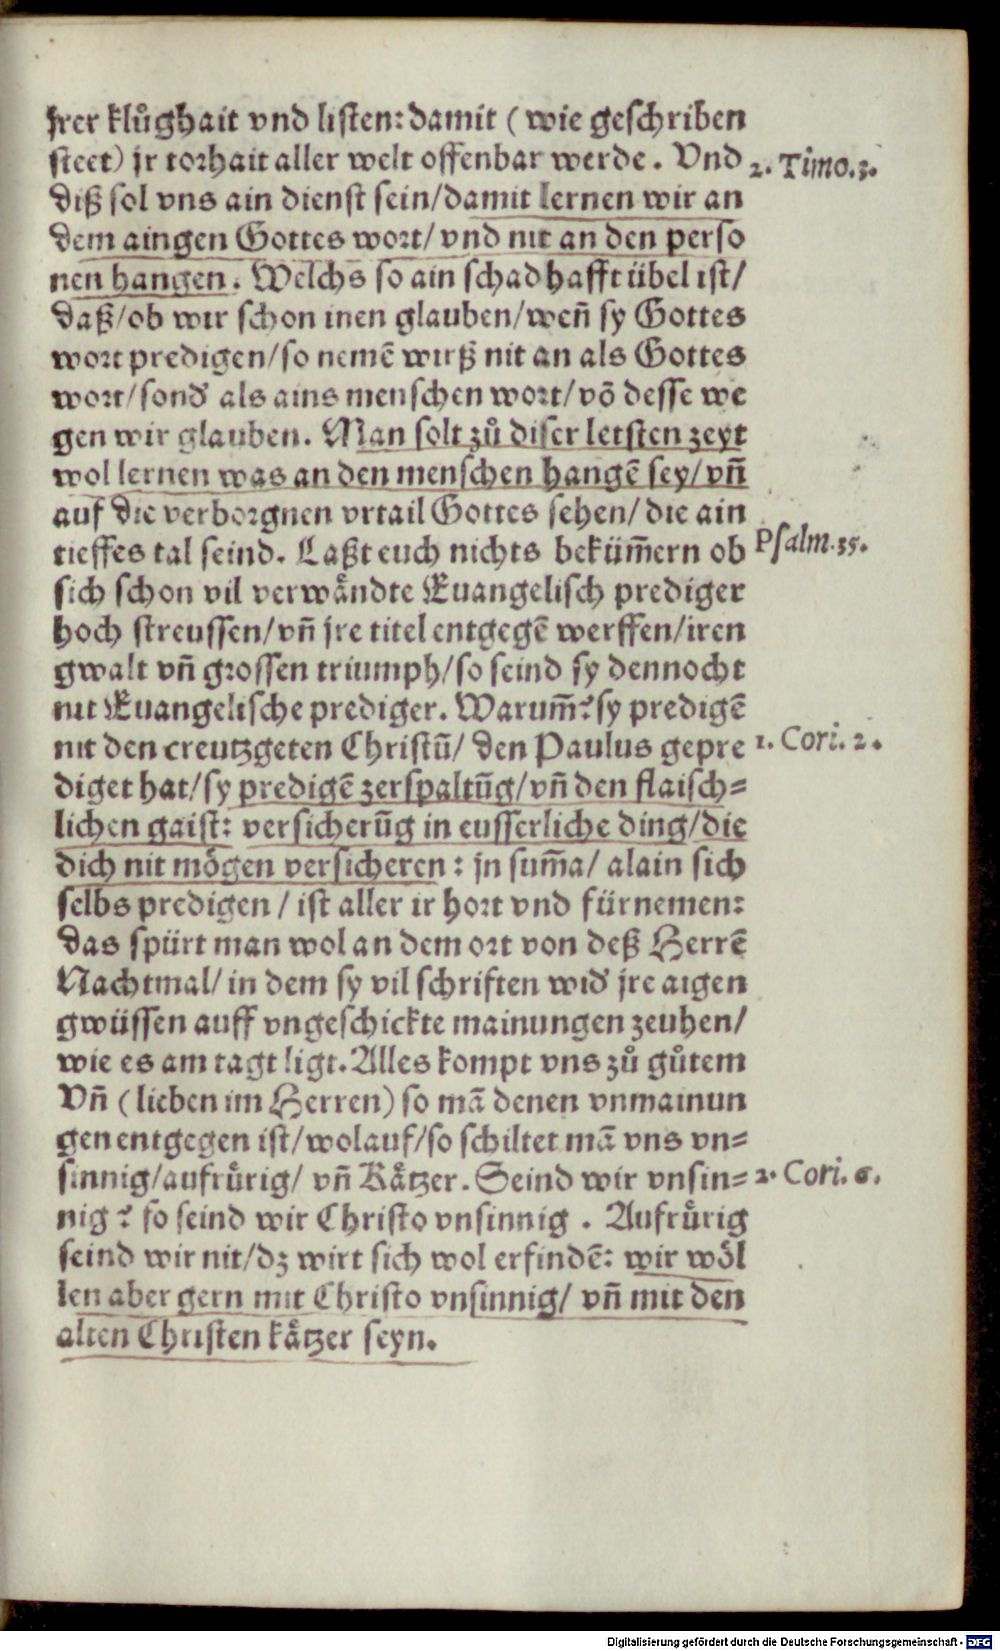 jrer klůghait vnd listen: damit ( wie geschriben
steet) jr torhait aller welt offenbar werde. Vnd
2. Timo. 3.
diß sol vns ain dienst sein/damit lernen wir an
dem aingen Gottes wort/ vnd nit an den perso
nen hangen. Welchs so ain schad hafft übel ist/
daß/ob wir schon inen glauben/weñ sy Gottes
wort predigen/so nemẽ wirß nit an als Gottes
wort/sond᷑ als ains menschen wort/võ desse we
gen wir glauben. Man solt zů diser letsten zeyt
wol lernen was an den menschen hangẽ sey/ vñ
auf die verborgnen vrtail Gottes sehen/ die ain
tieffes tal seind. Laßt euch nichts bekům̃ern ob
Psalm. 35.
sich schon vil verwåndte Euangelisch prediger
hoch streussen/vñ jre titel entgegẽ werffen/iren
gwalt vñ grossen triumph/so seind sy dennocht
nit Euangelische prediger. Warum̃? sy predigẽ
nit den creutzgeten Christũ/ den Paulus gepre
1. Cori. 2.
diget hat/sy predigẽ zerspaltũg/vñ den flaisch=
lichen gaist: versicherũg in eusserliche ding/die
dich nit mőgen versicheren: jn sum̃a/ alain sich
selbs predigen / ist aller ir hort vnd fürnemen:
das spürt man wol an dem ort von deß Herrẽ
Nachtmal/ in dem sy vil schriften wid᷑ jre aigen
gwüssen auff vngeschickte mainungen zeuhen/
wie es am tagt ligt. Alles kompt vns zů gůtem
Vñ (lieben im Herren) so mã denen vnmainun
gen entgegen ist/wolauf/so schiltet mã vns vn=
sinnig/aufrůrig/ vñ Kåtzer. Seind wir vnsin=
2. Cori. 6.
nig? so seind wir Christo vnsinnig . Aufrůrig
seind wir nit/dz wirt sich wol erfindẽ: wir wől
len aber gern mit Christo vnsinnig/ vñ mit den
alten Christen kåtzer seyn.
Digitalisierung gefördert durch die Deutsche Forschungsgemeinschaft - DFG